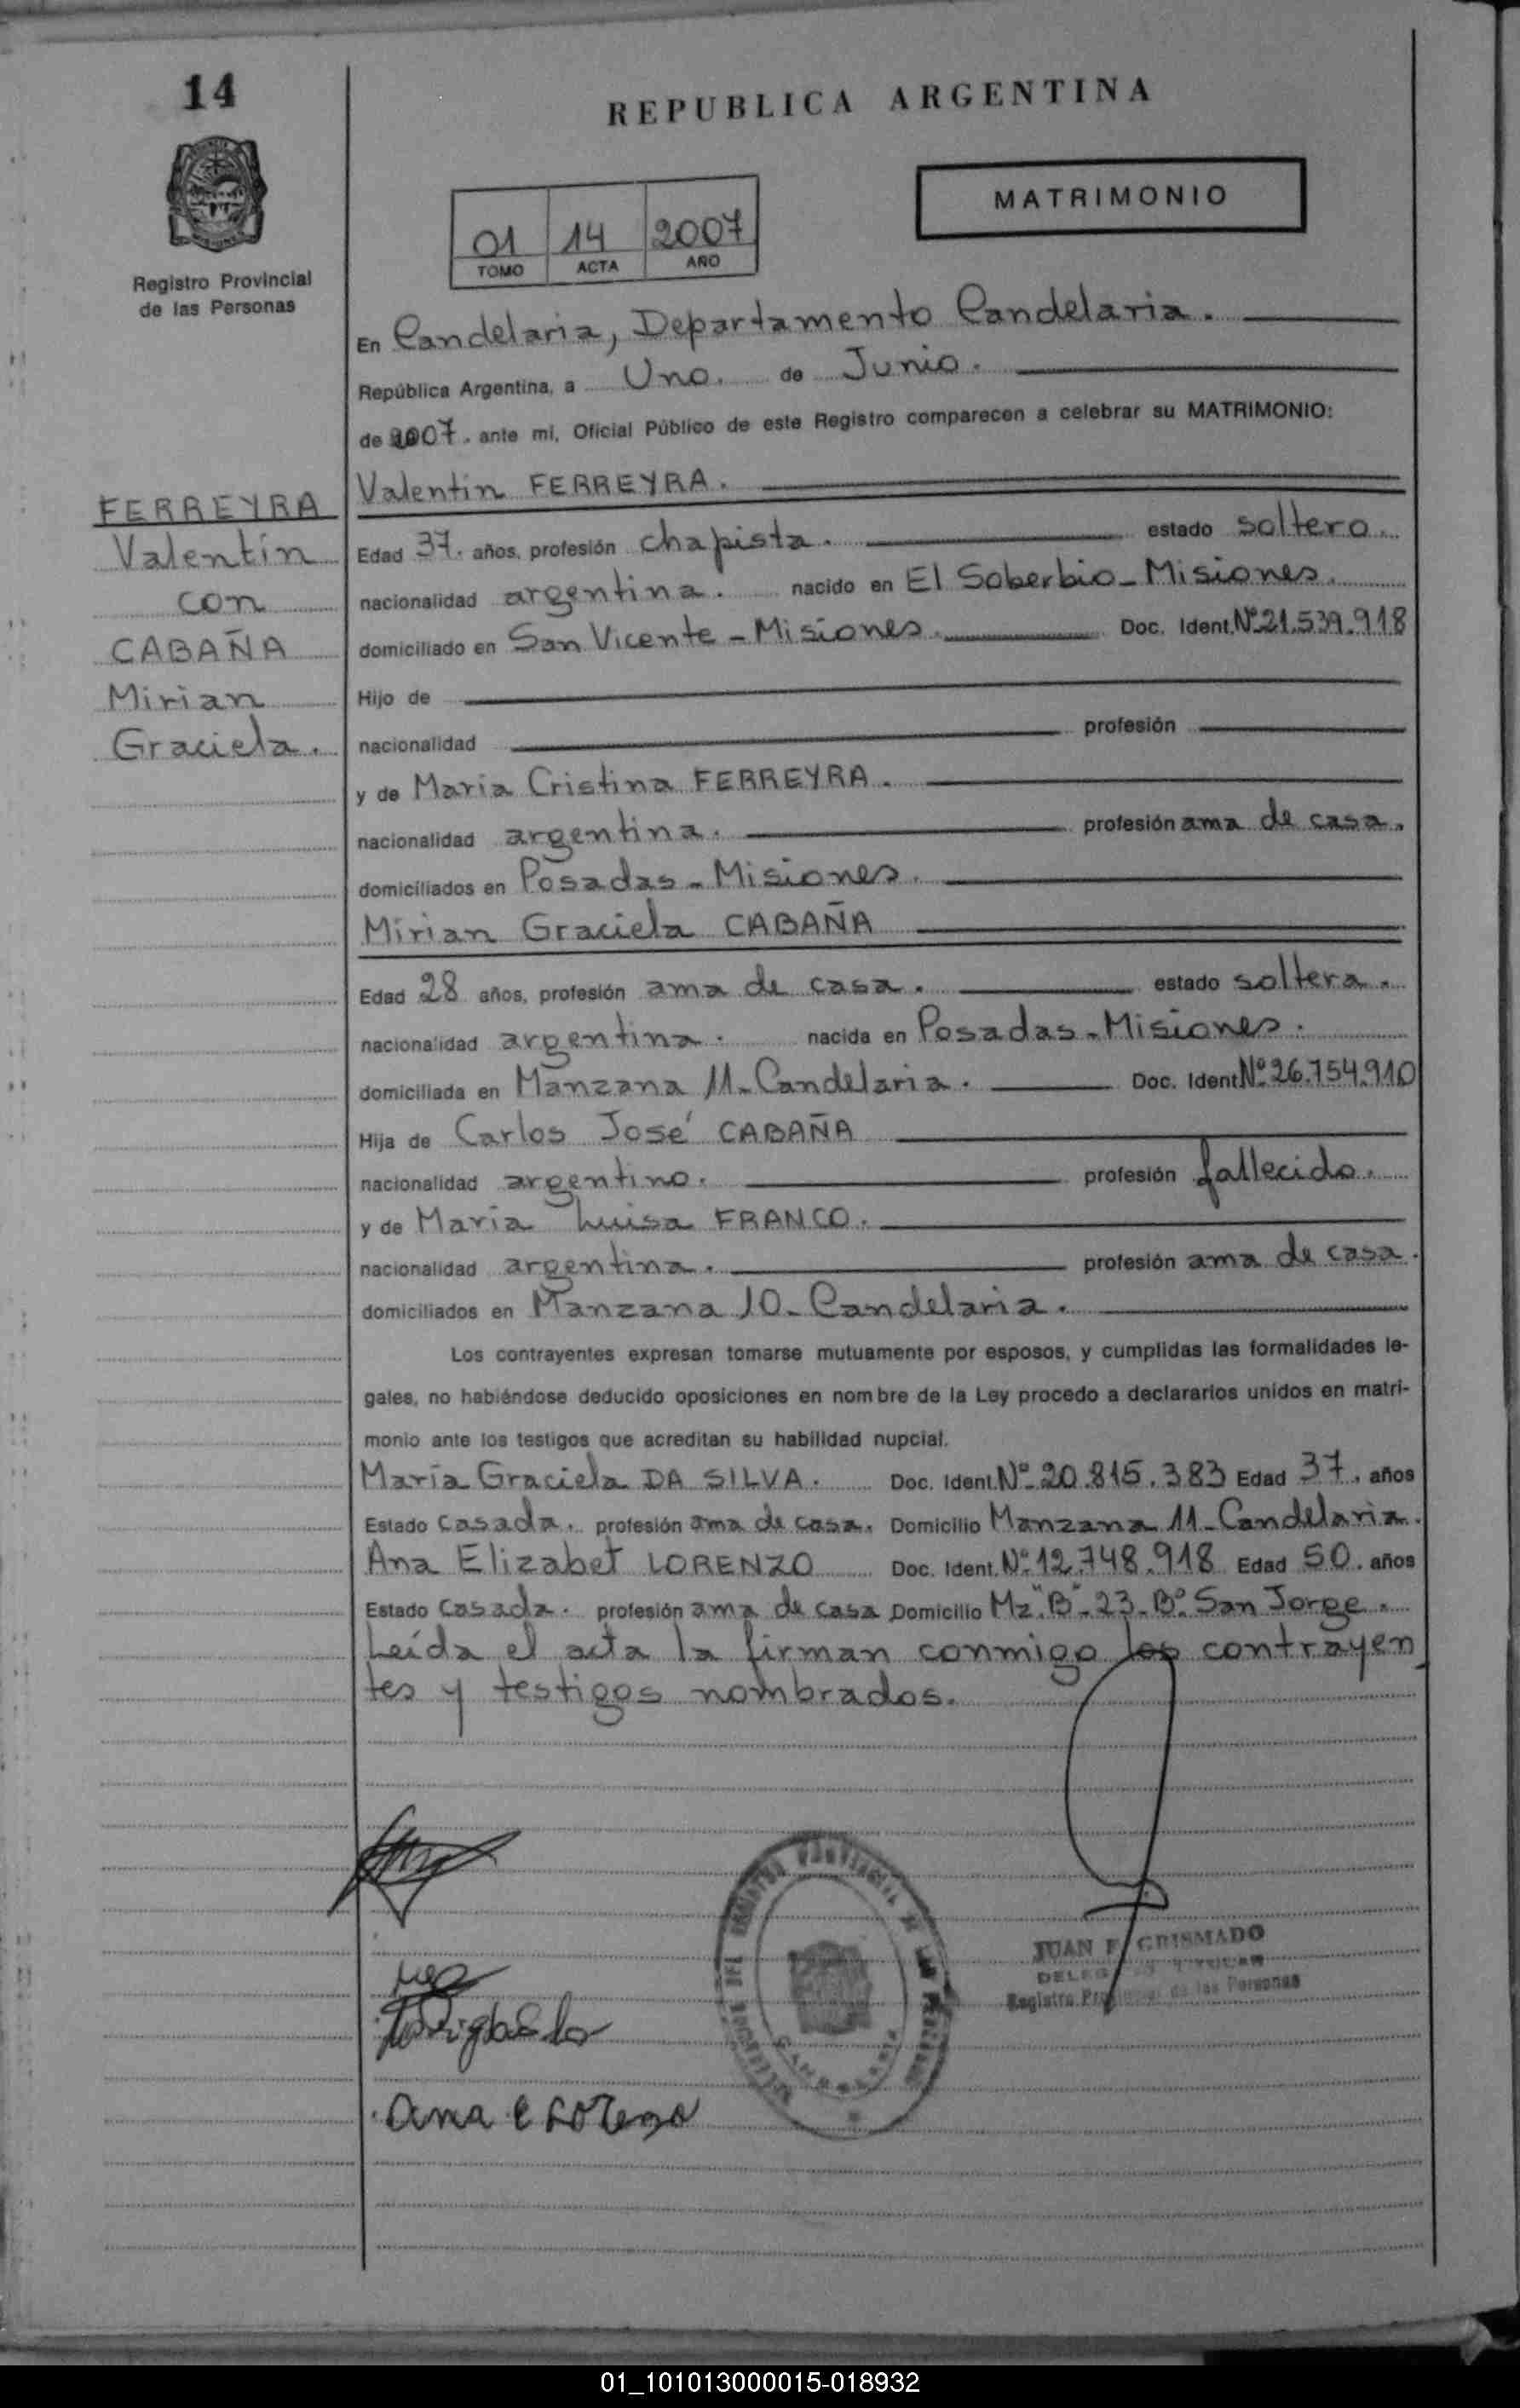 14
REPUBLICA ARGENTINA
MATRIMONIO
01 14 2007
TOMO ACTA AÑO
Registro Provincial
de las Personas
En Candelaria, Departamento Candelaria.
República Argentina, a Uno. de Junio.
de 2007. ante mi, Oficial Público de este Registro comparecen a celebrar su MATRIMONIO:
FERREYRA
Valentín
con
CABAÑA
Mirian
Graciela.
Valentín FERREYRA.
Edad 37. años, profesión chapista. estado soltero.
nacionalidad argentina. nacido en El Soberbio-Misiones.
domiciliado en San Vicente-Misiones. Doc. Ident. Nº 21.539.918
Hijo de
nacionalidad profesión
y de María Cristina FERREYRA.
nacionalidad argentina. profesión ama de casa.
domiciliados en Posadas-Misiones.
Mirian Graciela CABAÑA
Edad 28 años, profesión ama de casa. estado soltera.
nacionalidad argentina. nacida en Posadas-Misiones.
domiciliada en Manzana 11-Candelaria. Doc. Ident. Nº 26.754.910
Hija de Carlos José CABAÑA
nacionalidad argentino. profesión fallecido.
y de María Luisa FRANCO.
nacionalidad argentina. profesión ama de casa.
domiciliados en Manzana 10-Candelaria.
Los contrayentes expresan tomarse mutuamente por esposos, y cumplidas las formalidades le-
gales, no habiéndose deducido oposiciones en nombre de la Ley procedo a declararlos unidos en matri-
monio ante los testigos que acreditan su habilidad nupcial.
María Graciela DA SILVA. Doc. Ident. Nº 20.815.383 Edad 37. años
Estado casada. profesión ama de casa. Domicilio Manzana 11-Candelaria.
Ana Elizabet LORENZO Doc. Ident. Nº 12.748.918 Edad 50. años
Estado casada. profesión ama de casa Domicilio Mz."B"-23-Bº San Jorge.
Leída el acta la firman conmigo los contrayen
tes y testigos nombrados.
JUAN F. GRISMADO
Registro de las Personas
CANDELARIA
ana e Lorenzo
01_101013000015-018932